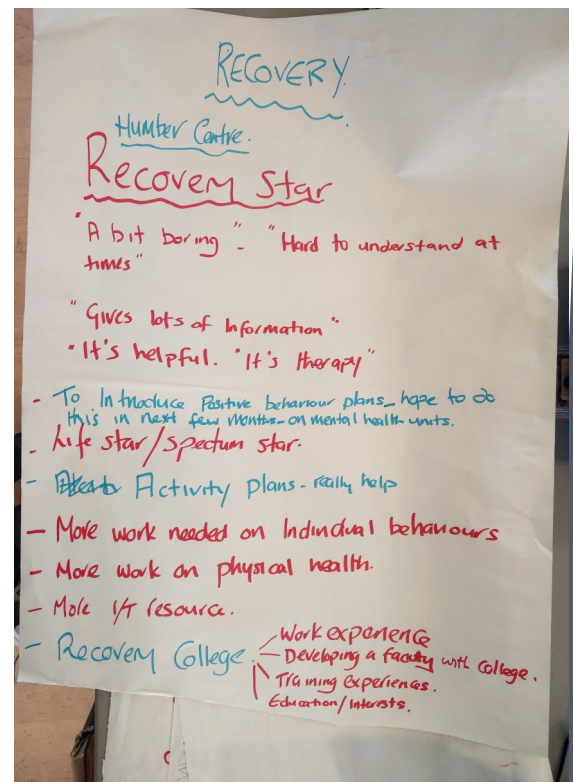 RECOVERY.
Humber Centre.
Recovery Star
"A bit boring" - "Hard to understand at
times"
"Gives lots of Information"
"It's helpful. "It's therapy"
- To Introduce Positive behaviour plans - hope to do
this in next few months - on mental health units.
- Life star/spectum star.
- Activity plans - really help
- More work needed on Individual behaviours
- More work on physical health.
- More I/T resource.
- Recovery College.
Work experience
Developing a faculty with College.
Training experiences.
Education/Interests.